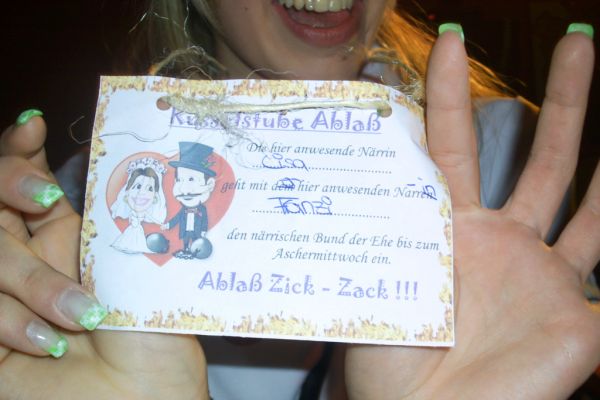 Kusselstube Ablaß
Die hier anwesende Närrin
Lisa
geht mit den hier anwesenden Närren -in
Tanzi
den närrischen Bund der Ehe bis zum
Aschermittwoch ein.
Ablaß Zick - Zack !!!